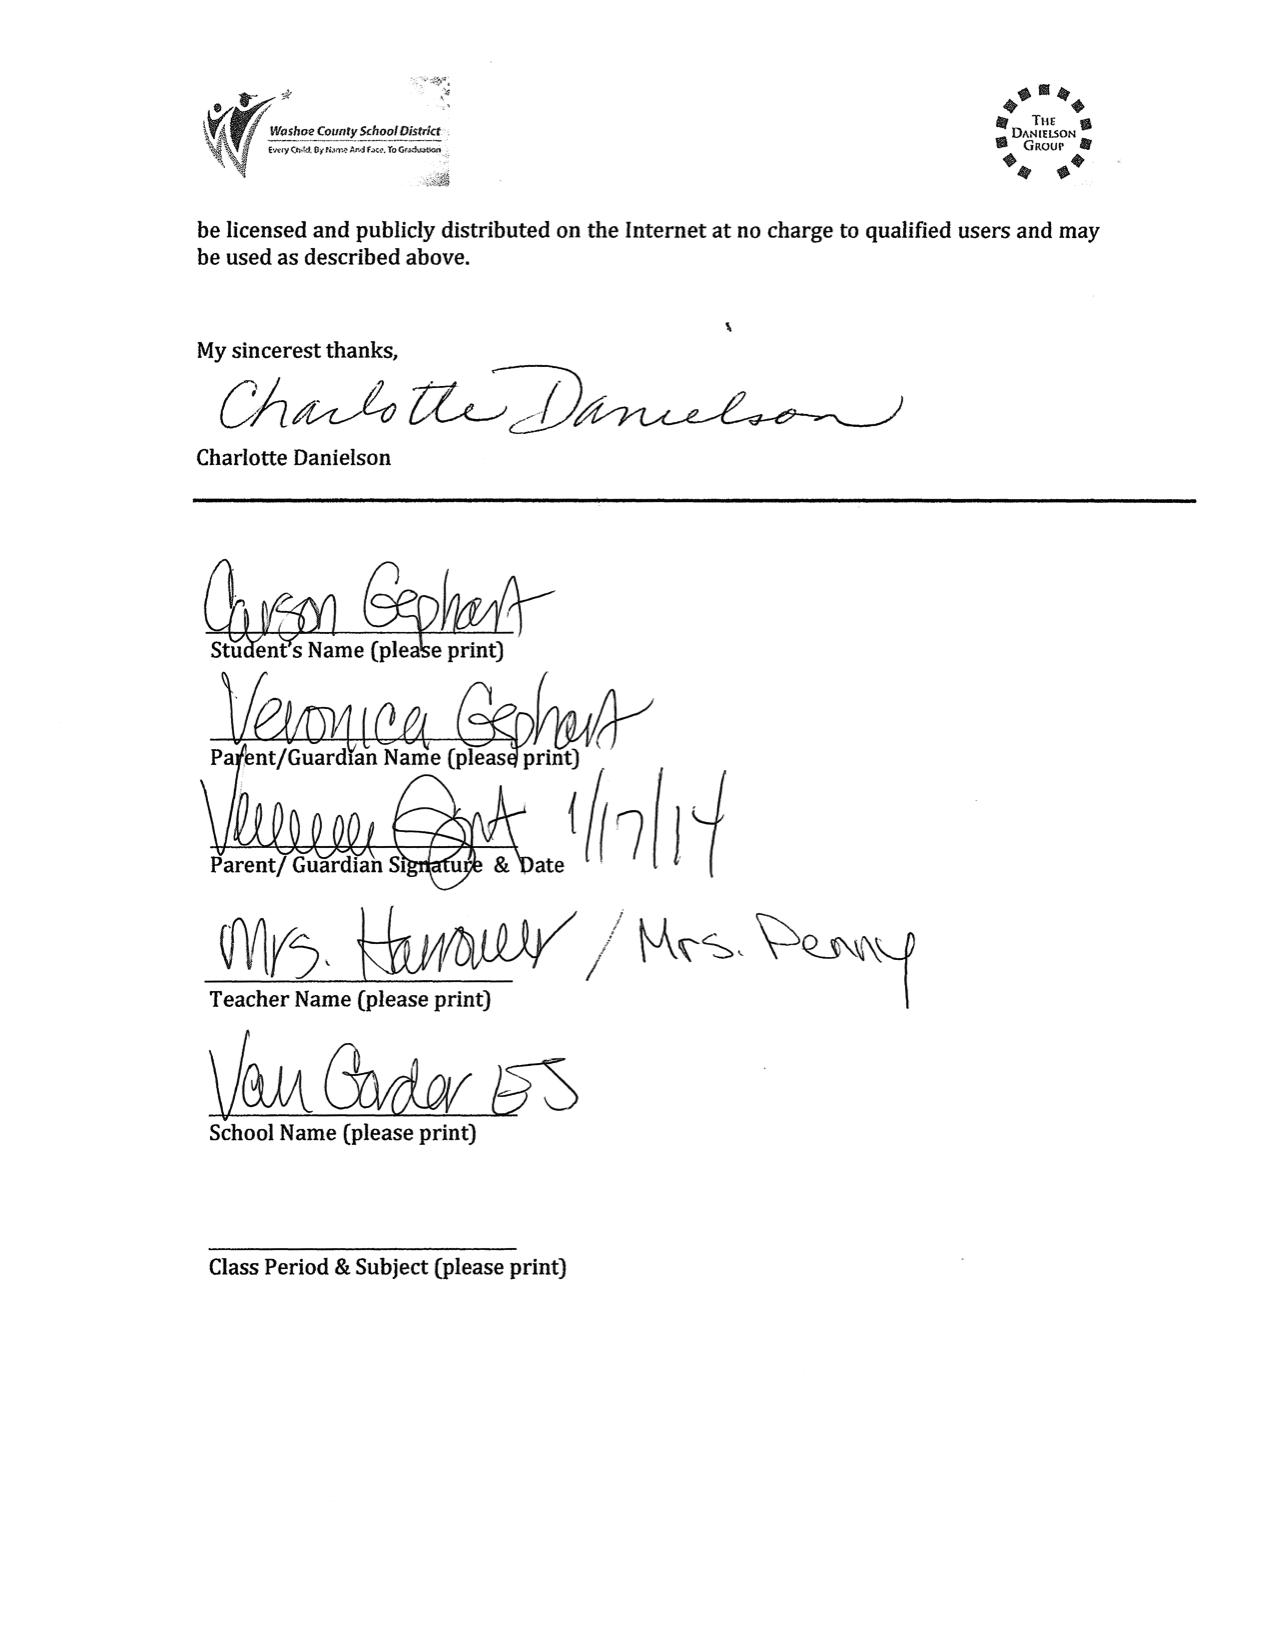 Washoe County School District
Every Child, By Name And Face, To Graduation
THE
DANIELSON
GROUP
be licensed and publicly distributed on the Internet at no charge to qualified users and may
be used as described above.
My sincerest thanks,
Charlotte Danielson
Charlotte Danielson
Carson Gephart
Student's Name (please print)
Veronica Gephart
Parent/Guardian Name (please print)
1/17/14
Parent/ Guardian Signature & Date
Mrs. Hanouer / Mrs. Penny
Teacher Name (please print)
Van Gorder ES
School Name (please print)
Class Period & Subject (please print)